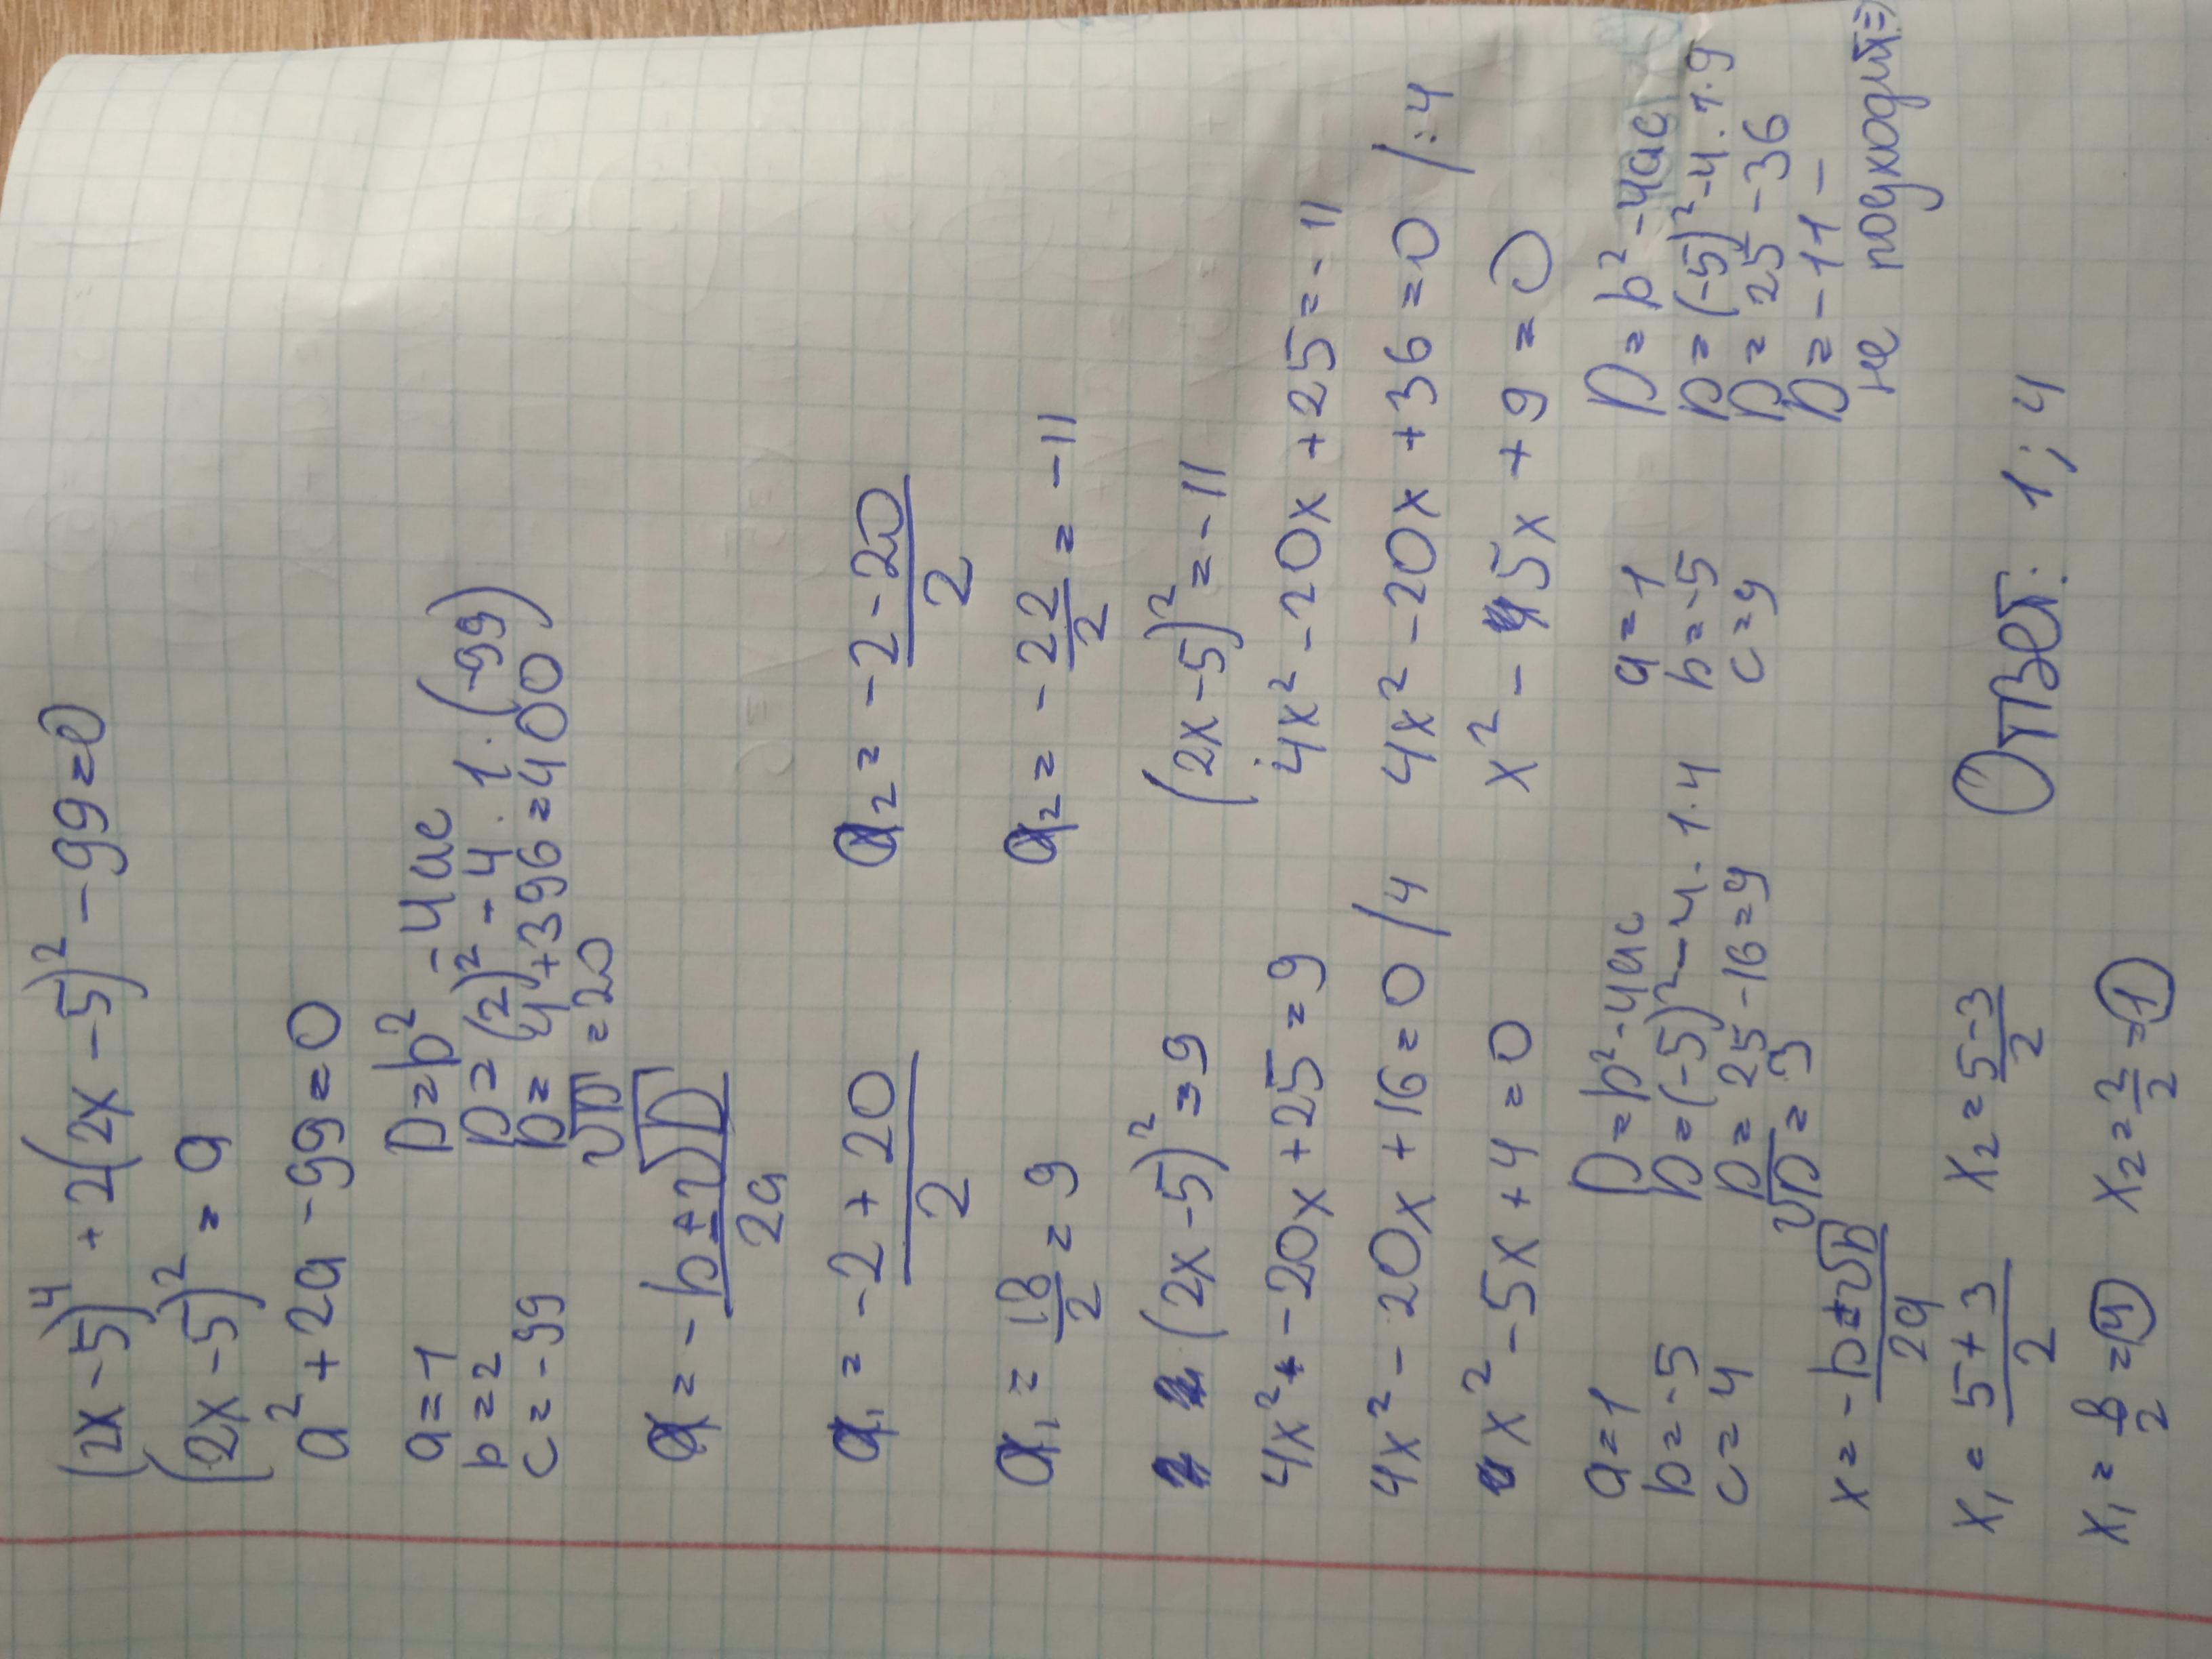 (2x-5)⁴+2(2x-5)²-99=0
(2x-5)²=a
a²+2a-99=0
a=1
b=2
c=-99
D=b²-4ac
D=(2)²-4·1·(-99)
D=4+396=400
√D=20
a=-b±√D/2a
a₁=-2+20/2
a₂=-2-20/2
a₁=18/2=9
a₂=-22/2=-11
(2x-5)²=9
(2x-5)²=-11
4x²-20x+25=9
4x²-20x+25=-11
4x²-20x+16=0 /4
4x²-20x+36=0 /:4
x²-5x+4=0
x²-5x+9=0
a=1
b=-5
c=4
D=b²-4ac
D=(-5)²-4·1·4
D=25-16=9
√D=3
a=1
b=-5
c=9
D=b²-4ac
D=(-5)²-4·1·9
D=25-36
D=-11-
не подходит=>
x=-b±√D/2a
x₁=5+3/2
x₂=5-3/2
x₁=8/2=4
x₂=2/2=1
Ответ: 1; 4